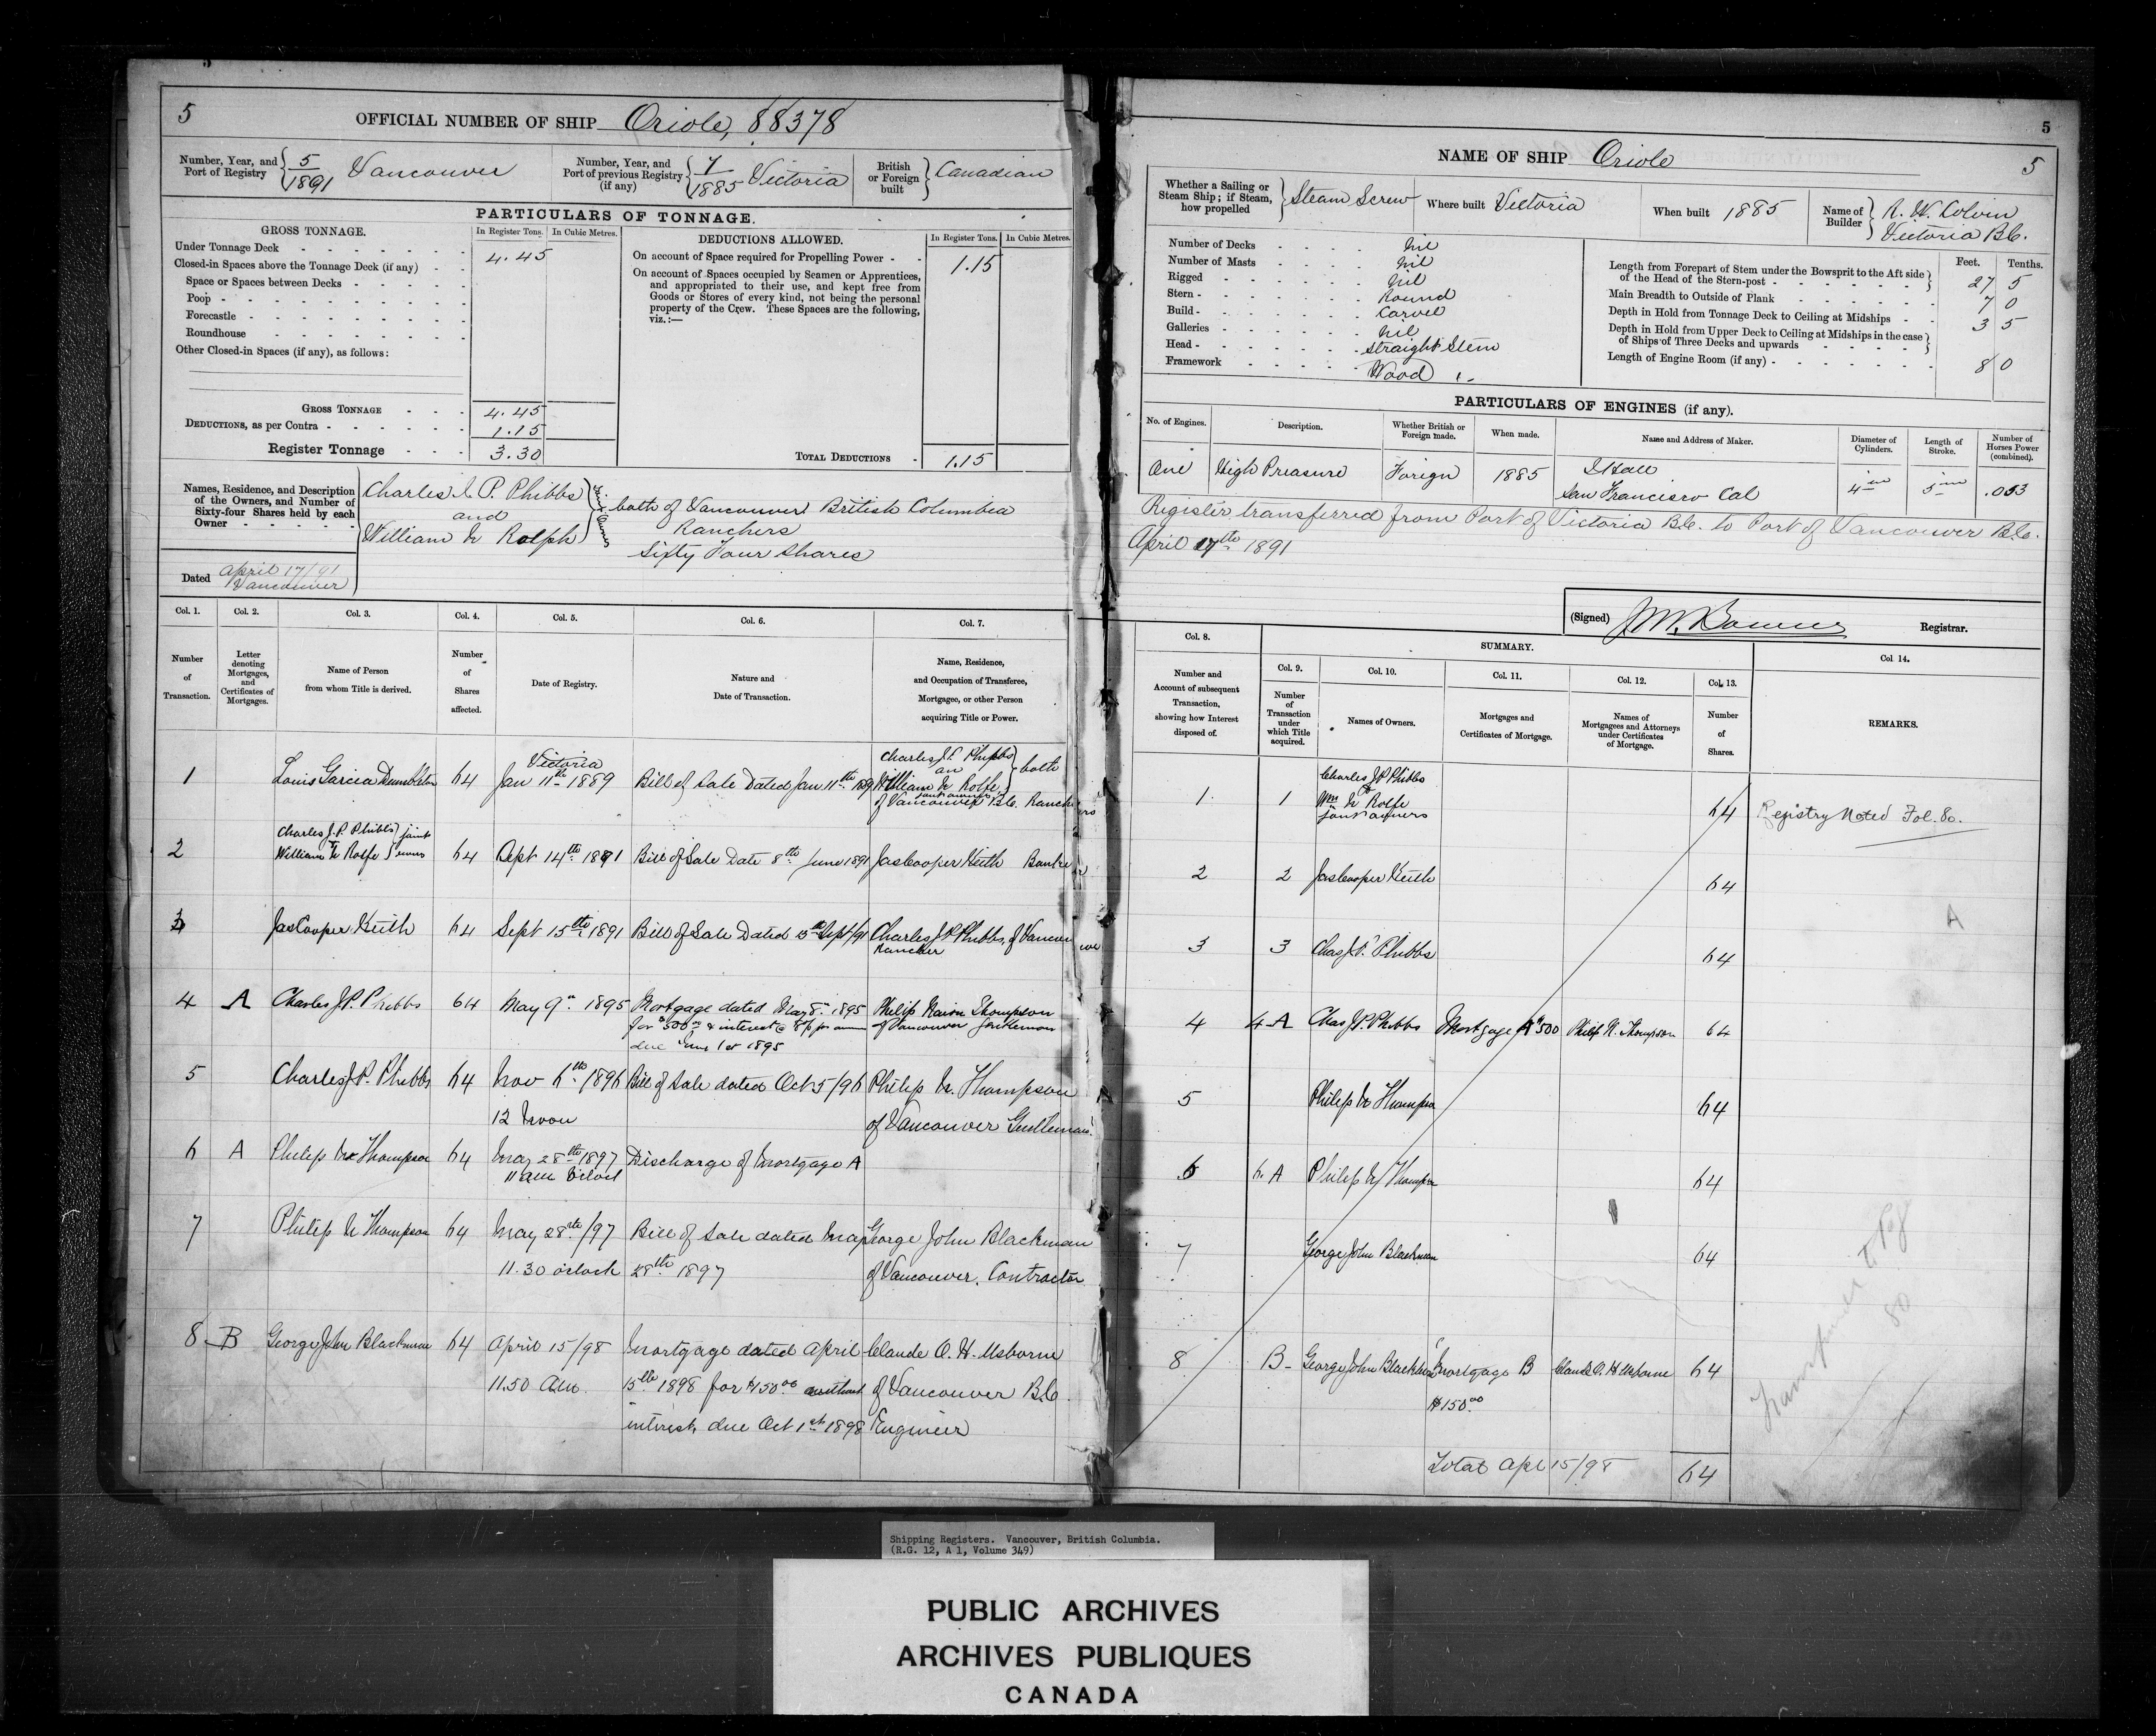 5
OFFICIAL NUMBER OF SHIP Oriole, 88378
Number, Year, and Port of Registry 5/1891 Vancouver
Number, Year, and Port of previous Registry (if any) 7/1885 Victoria
British or Foreign built Canadian
PARTICULARS OF TONNAGE.
GROSS TONNAGE. In Register Tons. In Cubic Metres.
Under Tonnage Deck 4.45
Closed-in Spaces above the Tonnage Deck (if any)
Space or Spaces between Decks
Poop
Forecastle
Roundhouse
Other Closed-in Spaces (if any), as follows:
GROSS TONNAGE 4.45
DEDUCTIONS, as per Contra 1.15
Register Tonnage 3.30
DEDUCTIONS ALLOWED. In Register Tons. In Cubic Metres.
On account of Space required for Propelling Power 1.15
On account of Spaces occupied by Seamen or Apprentices,
and appropriated to their use, and kept free from
Goods or Stores of every kind, not being the personal
property of the Crew. These Spaces are the following,
viz.:—
TOTAL DEDUCTIONS 1.15
Names, Residence, and Description
of the Owners, and Number of
Sixty-four Shares held by each
Owner
Charles J. P. Phibbs
and
William N Rolph
Joint Owners
both of Vancouver British Columbia
Ranchers
Sixty Four Shares
Dated April 17/91
Vancouver
Col. 1. Col. 2. Col. 3. Col. 4. Col. 5. Col. 6. Col. 7.
Number of Transaction.
Letter denoting Mortgages, and Certificates of Mortgages.
Name of Person from whom Title is derived.
Number of Shares affected.
Date of Registry.
Nature and Date of Transaction.
Name, Residence, and Occupation of Transferee, Mortgagee, or other Person acquiring Title or Power.
1 Louis Garcia Dumbleton 64 Victoria Jan 11th 1889 Bill of Sale Dated Jan 11th 1889 Charles J.P. Phibbs an William N Rolfe joint owners both of Vancouver B.C. Ranchers
2 Charles J.P. Phibbs William N Rolfe joint owners 64 Sept 14th 1891 Bill of Sale Date 8th June 1891 Jas Cooper Keith Banker
3 Jas Cooper Keith 64 Sept 15th 1891 Bill of Sale Dated 15th Sept/91 Charles J.P. Phibbs, of Vancouver Rancher
4 A Charles J.P. Phibbs 64 May 9th 1895 Mortgage dated May 8th 1895
for $500 & interest @ 8% per annum
due June 1st 1895
Philip Thompson
of Vancouver Gentleman
5 Charles J.P. Phibbs 64 Nov 6th 1896
12 Noon
Bill of Sale dated Oct 5/96 Philip N. Thompson
of Vancouver Gentleman
6 A Philip N Thompson 64 May 28th 1897
11 am o'clock
Discharge of Mortgage A
7 Philip N Thompson 64 May 28th/97
11.30 o'clock
Bill of Sale dated May
28th 1897
George John Blackman
of Vancouver, Contractor
8 B George John Blackman 64 April 15/98
11.50 a.m.
Mortgage dated April
15th 1898 for $150.00 without
interest, due Oct 1st 1898
Claude O. H. Usborne
of Vancouver B.C.
Engineer
5
NAME OF SHIP Oriole
5
Whether a Sailing or Steam Ship; if Steam, how propelled Steam Screw
Where built Victoria
When built 1885
Name of Builder R. W. Colvin
Victoria B.C.
Number of Decks nil
Number of Masts nil
Rigged nil
Stern Round
Build Carvel
Galleries nil
Head Straight Stem
Framework Wood
Feet. Tenths.
Length from Forepart of Stem under the Bowsprit to the Aft side
of the Head of the Stern-post 27 5
Main Breadth to Outside of Plank 7 0
Depth in Hold from Tonnage Deck to Ceiling at Midships 3 5
Depth in Hold from Upper Deck to Ceiling at Midships in the case
of Ships of Three Decks and upwards
Length of Engine Room (if any) 8 0
PARTICULARS OF ENGINES (if any).
No. of Engines. Description. Whether British or Foreign made. When made. Name and Address of Maker. Diameter of Cylinders. Length of Stroke. Number of Horses Power (combined).
One High Preasure Foreign 1885 Hall
San Francisco Cal
4 in 5 in .053
Register transferred from Port of Victoria B.C. to Port of Vancouver B.C.
April 17th 1891
(Signed) Registrar.
Col. 8. SUMMARY. Col 14.
Col. 9. Col. 10. Col. 11. Col. 12. Col. 13.
Number and Account of subsequent Transaction, showing how Interest disposed of.
Number of Transaction under which Title acquired.
Names of Owners.
Mortgages and Certificates of Mortgage.
Names of Mortgagees and Attorneys under Certificates of Mortgage.
Number of Shares.
REMARKS.
1 1 Charles J.P. Phibbs
&
Wm N Rolfe
joint owners
64 Registry Noted Fol. 80.
2 2 Jas Cooper Keith 64
A
3 3 Chas J.P. Phibbs 64
4 4 A Chas J.P. Phibbs Mortgage A $500 Philip N. Thompson 64
5 Philip N Thompson 64
6 6. A Philip N Thompson 64
7 George John Blackman 64
8 B George John Blackman Mortgage B
$150.00
Claude O. H Usborne 64
Total Apl 15/98 64
Transferred to Fol
80
Shipping Registers. Vancouver, British Columbia.
(R.G. 12, A 1, Volume 349)
PUBLIC ARCHIVES
ARCHIVES PUBLIQUES
CANADA